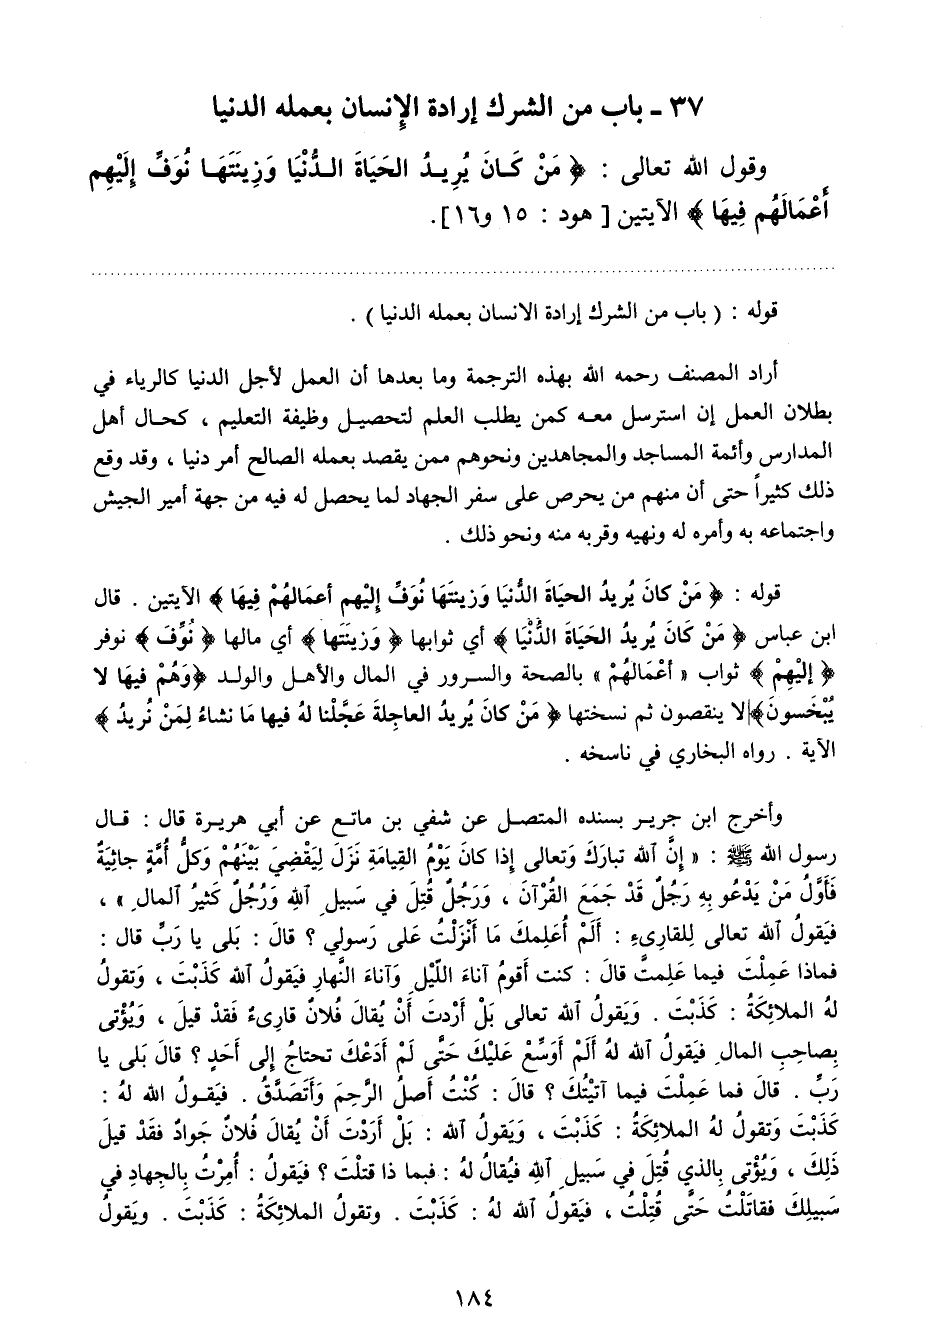 ٣٧ ـ باب من الشرك إرادة الإِنسان بعمله الدنيا
وقول الله تعالى : ﴿ مَنْ كَـانَ يُرِيـدُ الحَيَاةَ الـدُّنْيَا وَزِينَتَهَـا نُوَفِّ إِلَيْهِم
أَعْمَالَهُم فِيهَا ﴾ الآيتين [ هود : ١٥ و١٦ ].
قوله : ( باب من الشرك إرادة الانسان بعمله الدنيا ) .
أراد المصنف رحمه الله بهذه الترجمة وما بعدها أن العمل لأجل الدنيا كالرياء في
بطلان العمل إن استرسل معـه كمن يطلب العلم لتحصيـل وظيفة التعليم ، كحـال أهل
المدارس وأئمة المساجد والمجاهدين ونحوهم ممن يقصد بعمله الصالح أمر دنيا ، وقد وقع
ذلك كثيراً حتى أن منهم من يحرص على سفر الجهاد لما يحصل له فيه من جهة أمير الجيش
واجتماعه به وأمره له ونهيه وقربه منه ونحو ذلك .
قوله : ﴿ مَنْ كانَ يُريدُ الحياةَ الدُّنيا وَزينتَهَا نُوَفِّ إليْهِم أعمالهُمْ فِيهَا ﴾ الآيتين . قال
ابن عباس ﴿ مَنْ كَانَ يُريدُ الحَيَاةَ الدُّنْيَا ﴾ أي ثوابها ﴿ وَزينَتَها ﴾ أي مالها ﴿ نُوَِّفَ ﴾ نوفر
﴿ إليْهِمْ ﴾ ثواب « أعْمَالهُمْ » بالصحة والسرور في المال والأهل والولد ﴿وَهُمْ فيهَا لا
يُبْخَسونَ﴾ لا ينقصون ثم نسختها ﴿ مَنْ كانَ يُريدُ العاجِلةَ عَجَّلْنا لهُ فيها مَا نشاءُ لِمَنْ نُريدُ ﴾
الآية . رواه البخاري في ناسخه .
وأخرج ابن جرير بسنده المتصل عن شفي بن ماتع عن أبي هريرة قال : قال
رسول الله ﷺ : « إِنَّ اللّه تبارَكَ وَتعالى إذا كانَ يَوْمُ القِيامَةِ نَزَلَ لِيَقْضِيَ بَيْنَهُمْ وَكلُّ أُمَّةٍ جاثِيَةٌ
فَأَوَّلُ مَنْ يَدْعُو بِهِ رَجلٌ قَدْ جَمَعَ القُرْآنَ ، وَرَجلٌ قُتِلَ في سَبيلِ اللّهِ وَرُجلٌ كَثيرُ المالِ » ،
فيَقولُ اللّهُ تعالى لِلقارِىءِ : أَلَمْ أُعَلِمكَ مَا أَنْزَلْتُ على رَسولي ؟ قالَ : بَلى يا رَبِّ قال :
فماذا عَمِلْتَ فيما عَلِمتَّ قالَ : كنت أقومُ آناءَ اللّيْلِ وَآناءَ النَّهارِ فيَقولُ اللّه كَذَبْتَ ، وَتقولُ
لهُ الملائِكَةُ : كَذَبْتَ . وَيَقولُ اللّه تعالى بَلْ أَرْدتَ أَنْ يُقالَ فُلانٌ قارِىءٌ فَقدْ قيلَ ، وَيُؤْتى
بِصاحِبِ المالِ فيَقولُ اللّهُ لهُ أَلَمْ أُوَسِّعْ عَلَيْكَ حَتَّى لَمْ أَدَعْكَ تحتاجُ إلى أَحَدٍ ؟ قالَ بَلى يا
رَبِّ . قالَ فما عَمِلْتَ فيما آتَيْتُكَ ؟ قالَ : كُنْتُ أَصلُ الرَّحِمَ وَأَتَصَدَّقُ . فيَقـولُ اللّه لهُ :
كَذَبْتَ وَتقولُ لهُ الملائِكَةُ : كَذَبْتَ ، وَيَقولُ اللّه : بَلْ أَرَدْتَ أَنْ يُقالَ فُلانٌ جَوادٌ فقَدْ قيلَ
ذلِكَ ، وَيُؤْتى بِالذي قُتِلَ في سَبيلِ اللّهِ فيُقالُ لهُ : فبما ذا قتلْتَ ؟ فيَقولُ : أُمِرْتُ بِالجِهادِ في
سَبيلِكَ فقاتَلْتُ حَتَّى قُتِلْتُ ، فيَقولُ اللّه لهُ : كَذَبْتَ . وتقولُ الملائِكَةُ : كَذَبْتَ . ويَقولُ
١٨٤